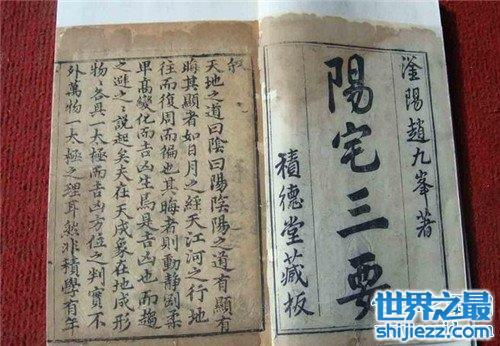 滏陽趙九峯著
陽宅三要
積德堂藏板
敘
天地之道曰陰曰陽陰陽之道有顯有
晦其顯者如日月之經天江河之行地
往而復周而徧也其晦者則動靜剛柔
卑高變化而吉凶生焉具吉凶也而趨
之避之〻說起矣夫在天成象在地成形
物〻各具一太極而吉凶方位之判實不
外萬物一太極之理耳然非積學有年
世界之最
shijiezz.com